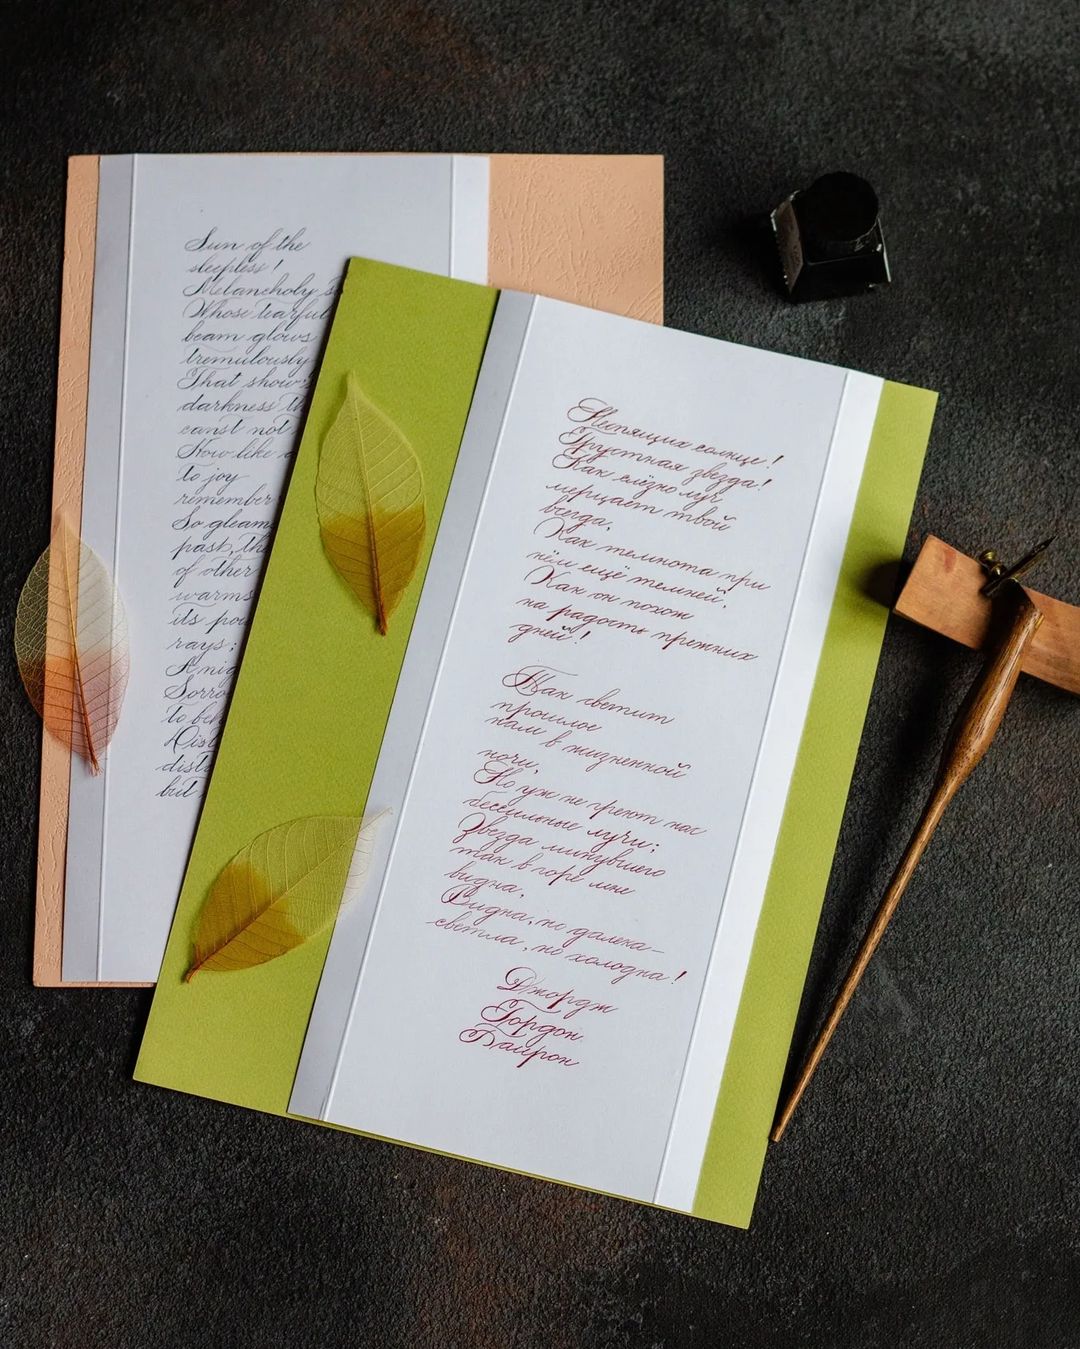 Sun of the
sleepless!
Melancholy s
Whose tearful
beam glows
tremulously
That show
darkness th
canst not
How like
to joy
remember
So gleam
past, the
of other
warms
its pow
rays:
A nig
Sorro
to beh
Dist
dist
but
Неспящих солнце!
Грустная звезда!
Как слёзно луч
мерцает твой
всегда,
Как темнота при
нём ещё темней,
Как он похож
на радость прежних
дней!
Так светит
прошлое
нам в жизненной
ночи,
Но уж не греют нас
бессильные лучи;
Звезда минувшего
так в горе мне
видна,
Видна, но далека—
светла, но холодна!
Джордж
Гордон
Байрон